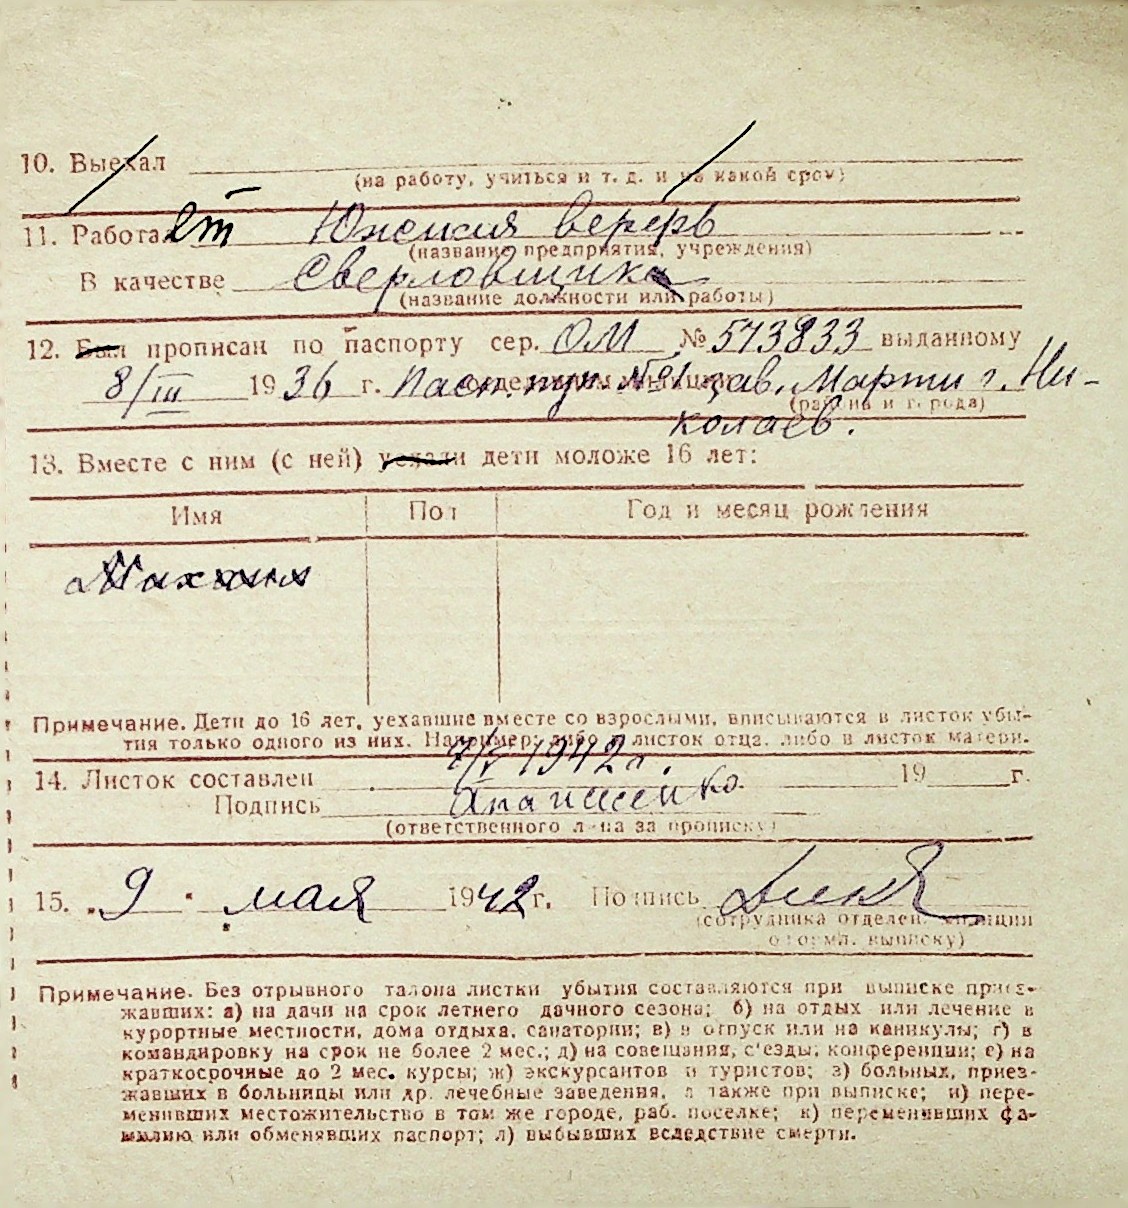 10. Выехал
(на работу, учиться и т. д. и на какой срок)
11. Работает Южския верерь
(название предприятия, учреждения)
В качестве Сверловщика
(название должности или работы)
12. Был прописан по паспорту сер. ОМ № 573833 выданному
8/III 1936 г. Пасп. пун. №1 зав. Марти г. Ни-
(района и города)
колаев.
13. Вместе с ним (с ней) уехали дети моложе 16 лет:
Имя Пол Год и месяц рождения
Примечание. Дети до 16 лет, уехавшие вместе со взрослыми, вписываются в листок убы-
тия только одного из них. Например: либо в листок отца, либо в листок матери.
7/V 1942 г.
14. Листок составлен 19 г.
Подпись
(ответственного л-ца за прописку)
15. "9" мая 1942 г. Подпись
(сотрудника отделен. милиции
оформл. выписку)
Примечание. Без отрывного талона листки убытия составляются при выписке приез-
жавших: а) на дачи на срок летнего дачного сезона; б) на отдых или лечение в
курортные местности, дома отдыха, санатории; в) в отпуск или на каникулы; г) в
командировку на срок не более 2 мес.; д) на совещания, с'езды, конференции; е) на
краткосрочные до 2 мес. курсы; ж) экскурсантов и туристов; з) больных, приез-
жавших в больницы или др. лечебные заведения, а также при выписке; и) пере-
менивших местожительство в том же городе, раб. поселке; к) переменивших фа-
милию или обменявших паспорт; л) выбывших вследствие смерти.